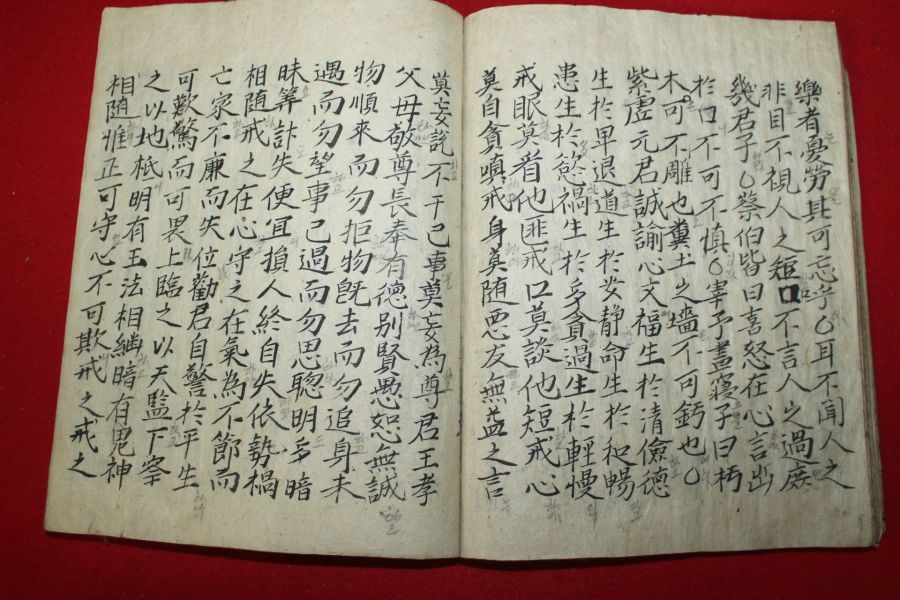 樂者憂勞其可忘乎〇耳不聞人之
非目不視人之短口不言人之過庶
幾君子〇蔡伯皆曰喜怒在心言出
於口不可不慎〇宰予晝寢子曰朽
木可不雕也糞土之墻不可釫也〇
紫虛元君誠諭心文福生於清儉德
生於卑退道生於安静命生於和暢
患生於慾禍生於多貪過生於輕慢
戒眼莫看他匪戒口莫談他短戒心
莫自貪嗔戒身莫随惡友無益之言
莫妄說不干己事莫妄為尊君王孝
父母敬尊長奉有德別賢愚恕無誠
物順來而勿拒物旣去而勿追身未
遇而勿望事已過而勿思聦明多暗
昧筭計失便宜損人終自失依勢禍
相随戒之在心守之在氣為不節而
亡家不廉而失位勸君自警於平生
可歎驚而可畏上臨之以天監下察
之以地祇明有王法相継暗有鬼神
相随惟正可守心不可欺戒之戒之